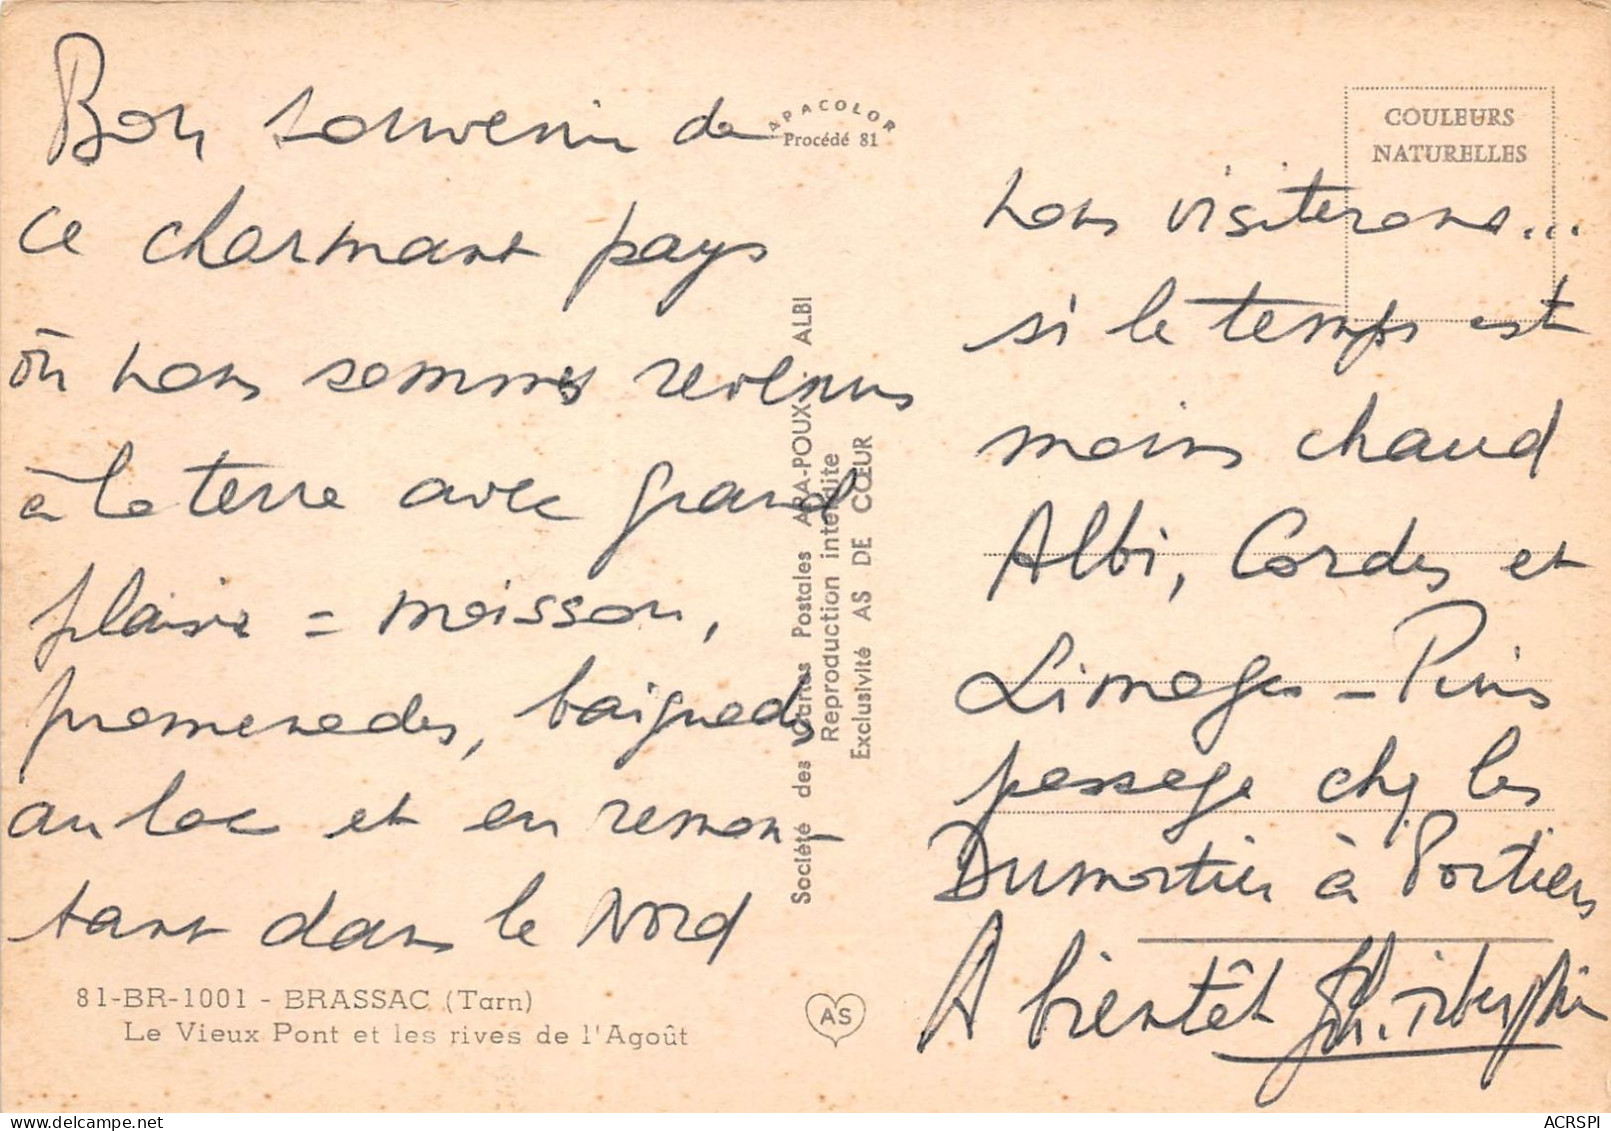 Bon souvenir de
ce charmant pays
où nous sommes revenus
à la terre avec grand
plaisir = moisson,
promenades, baignades
au lac et en remon-
tant dans le Nord
81-BR-1001 - BRASSAC (Tarn)
Le Vieux Pont et les rives de l'Agoût
APACOLOR
Procédé 81
Société des Cartes Postales APA-POUX - ALBI
Reproduction interdite
Exclusivité AS DE CŒUR
AS
COULEURS
NATURELLES
nous visiterons...
si le temps est
moins chaud
Albi, Cordes et
Limoges - Puis
passage chez les
Dumortier à Poitiers
A bientôt
ACRSPI